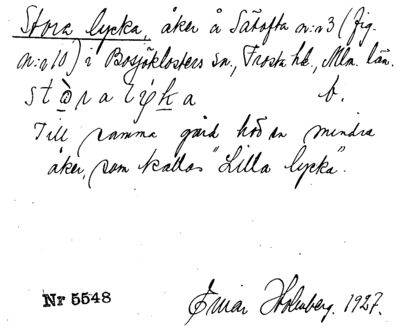 Stora lycka, åker å Sätofta n:o 3 (fig.
n:o 10) i Bosjöklosters sn., Frosta hd., Mlm. län.
b.
Till samma gård hör en mindre
åker, som kallas "Lilla lycka".
Nr 5548 Einar Holmberg. 1927.